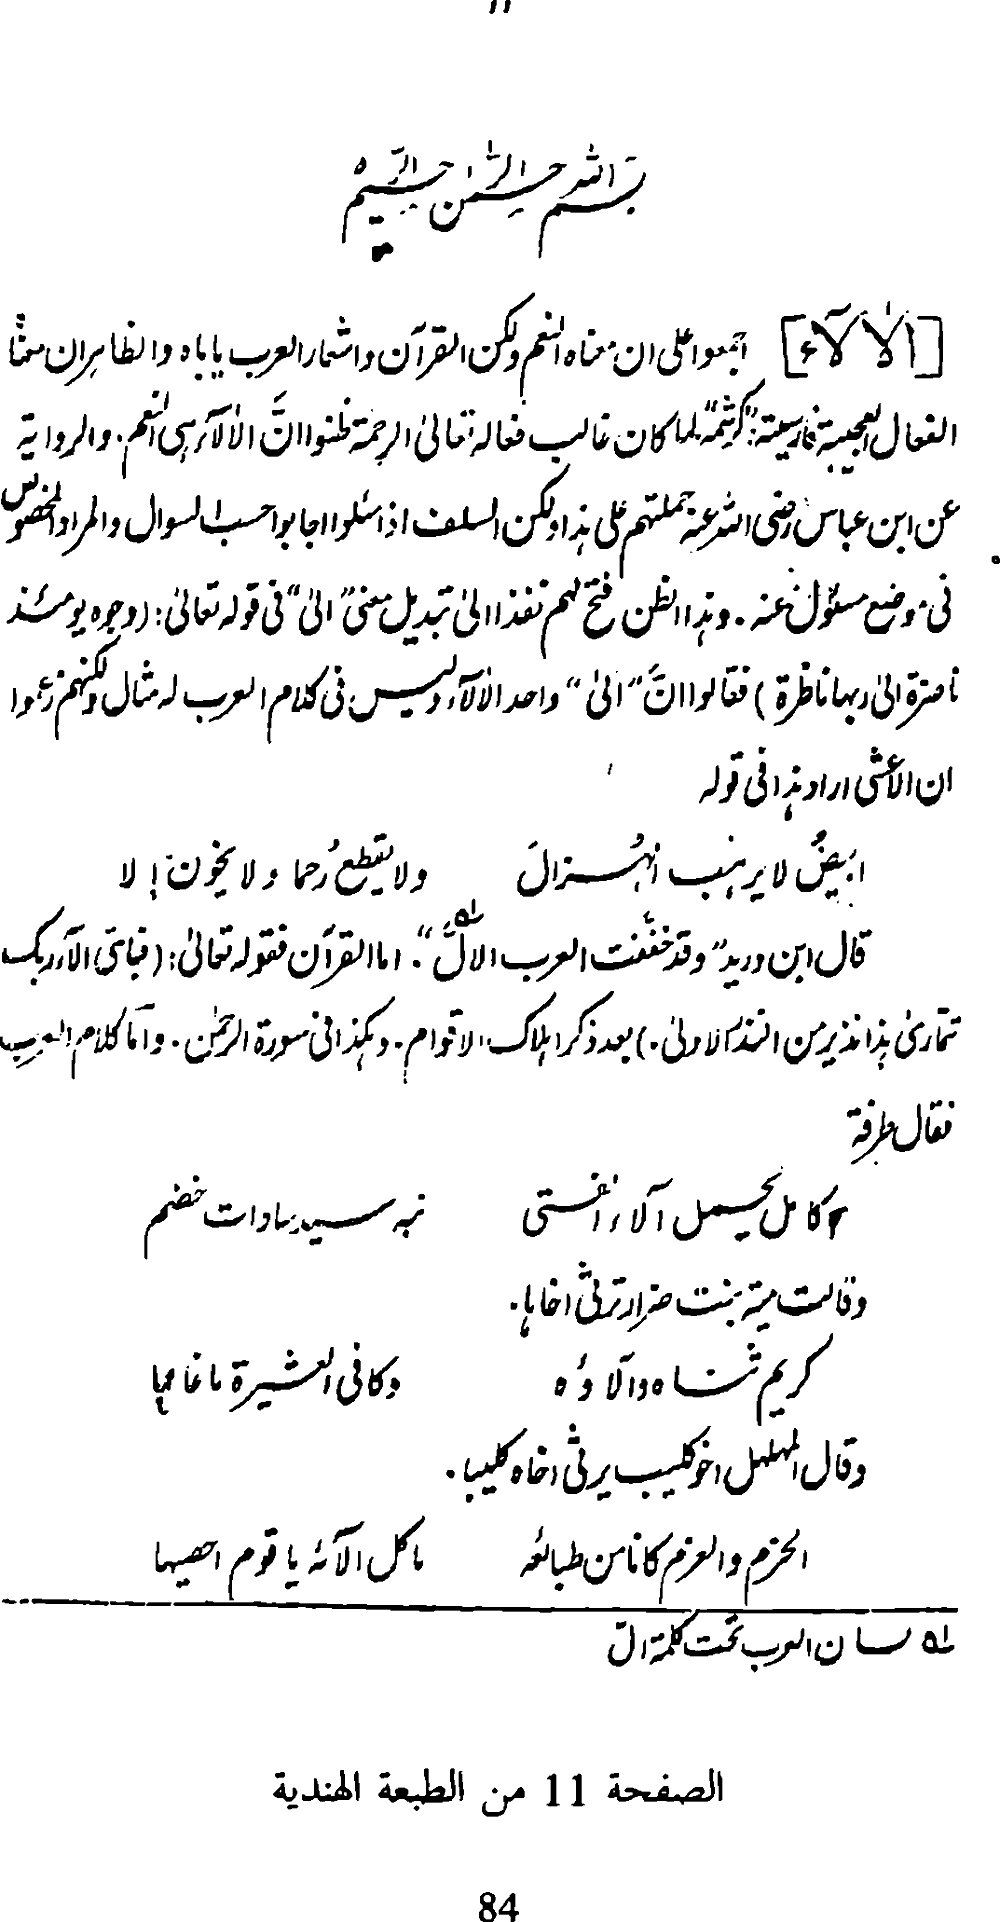 ١١
بسم الله الرحمٰن الرحيم
[الاٰلآء] اجمعوا على ان معناه النعم ولكن القرآن واشعار العرب ياباه والظاهران معناها
الفعال العجيبة فارسيته: "كرشمه" لما كان غالب فعاله تعالىٰ الرحمة ظنوا انَّ الاٰلآء هى النعم. والرواية
عن ابن عباس رضى الله عنه حملتهم على هذا ولكن السلف اذا سئلوا اجابوا حسب السوال والمراد المخصوص
فى موضع مسئول عنه. وهذا الظن فتح لهم نفذا الىٰ تبديل معنىٰ "الىٰ" فى قوله تعالىٰ: (وجوه يومئذ
ناضرة الىٰ ربها ناظرة) فقالوا انَّ "الىٰ" واحد الاٰلآء وليس فى كلام العرب له مثال ولكنهم زعموا
ان الأعشى اراد هذا فى قوله
ابيضُ لا يرهب الهُزالَ ولا يقطع رُحما ولا يخون إلا
قال ابن دريد "وقد خففت العرب الالَّ". اما القرآن فقوله تعالىٰ: (فبأىّ الآء ربك
تتمارىٰ هذا نذير من النذر الاولىٰ.) بعد ذكر اهلاك الاقوام. وهكذا فى سورة الرحمٰن. وأما كلام العرب
فقال طرفة
كامل يحمل آلاء الفتى نبه سيد سادات خضم
وقالت مية بنت ضرار ترثى اخاها.
كريم ثناه وآلاؤه وكافى العشيرة ما غالها
وقال المهلهل اخو كليب يرثى اخاه كليبا.
الحزم والعزم كانا من طبائعه ما كل الآئه يا قوم احصيها
لسان العرب تحت كلمة الّ
الصفحة 11 من الطبعة الهندية
84